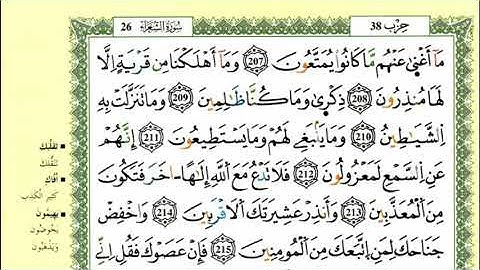 حِزْب 38
سُورَةُ الشُّعَرَاءِ 26
مَآ أَغْنىٰ عَنْهُم مَّا كَانُواْ يُمَتَّعُونَ 207 وَمَآ أَهْلَكْنَا مِن قَرْيَةٍ اِلَّا
لَهَا مُنذِرُونَ 208 ذِكْرىٰ وَمَا كُنَّا ظَٰلِمِينَ 209 وَمَا تَنَزَّلَتْ بِهِ
اِ۬لشَّيَٰطِينُ 210 وَمَا يَنۢبَغِے لَهُمْ وَمَا يَسْتَطِيعُونَ 211 إِنَّهُمْ
عَنِ اِ۬لسَّمْعِ لَمَعْزُولُونَ 212 فَلَا تَدْعُ مَعَ اَ۬للَّهِ إِلَٰهاً اٰخَرَ فَتَكُونَ
مِنَ اَ۬لْمُعَذَّبِينَ 213 وَأَنذِرْ عَشِيرَتَكَ اَ۬لَاقْرَبِينَ 214 وَاخْفِضْ
جَنَاحَكَ لِمَنِ اِ۪تَّبَعَكَ مِنَ اَ۬لْمُومِنِينَ 215 فَإِنْ عَصَوْكَ فَقُلِ اِنِّے
تَقَلُّبَكَ
تَنَقُّلَكَ
أَفَّاكٍ
كَثِيرِ الْكَذِبِ
يَهِيمُونَ
يَخُوضُونَ
وَيَذْهَبُونَ